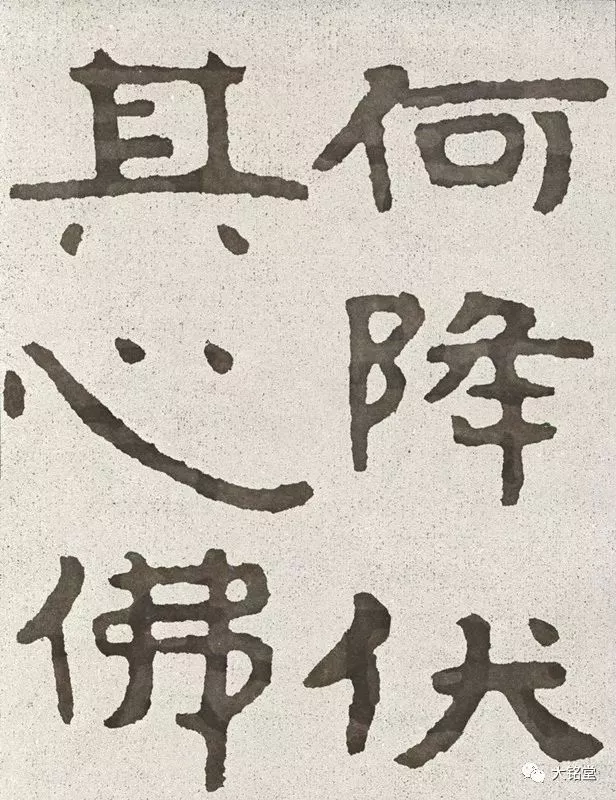 何降伏
其心佛
大铭堂